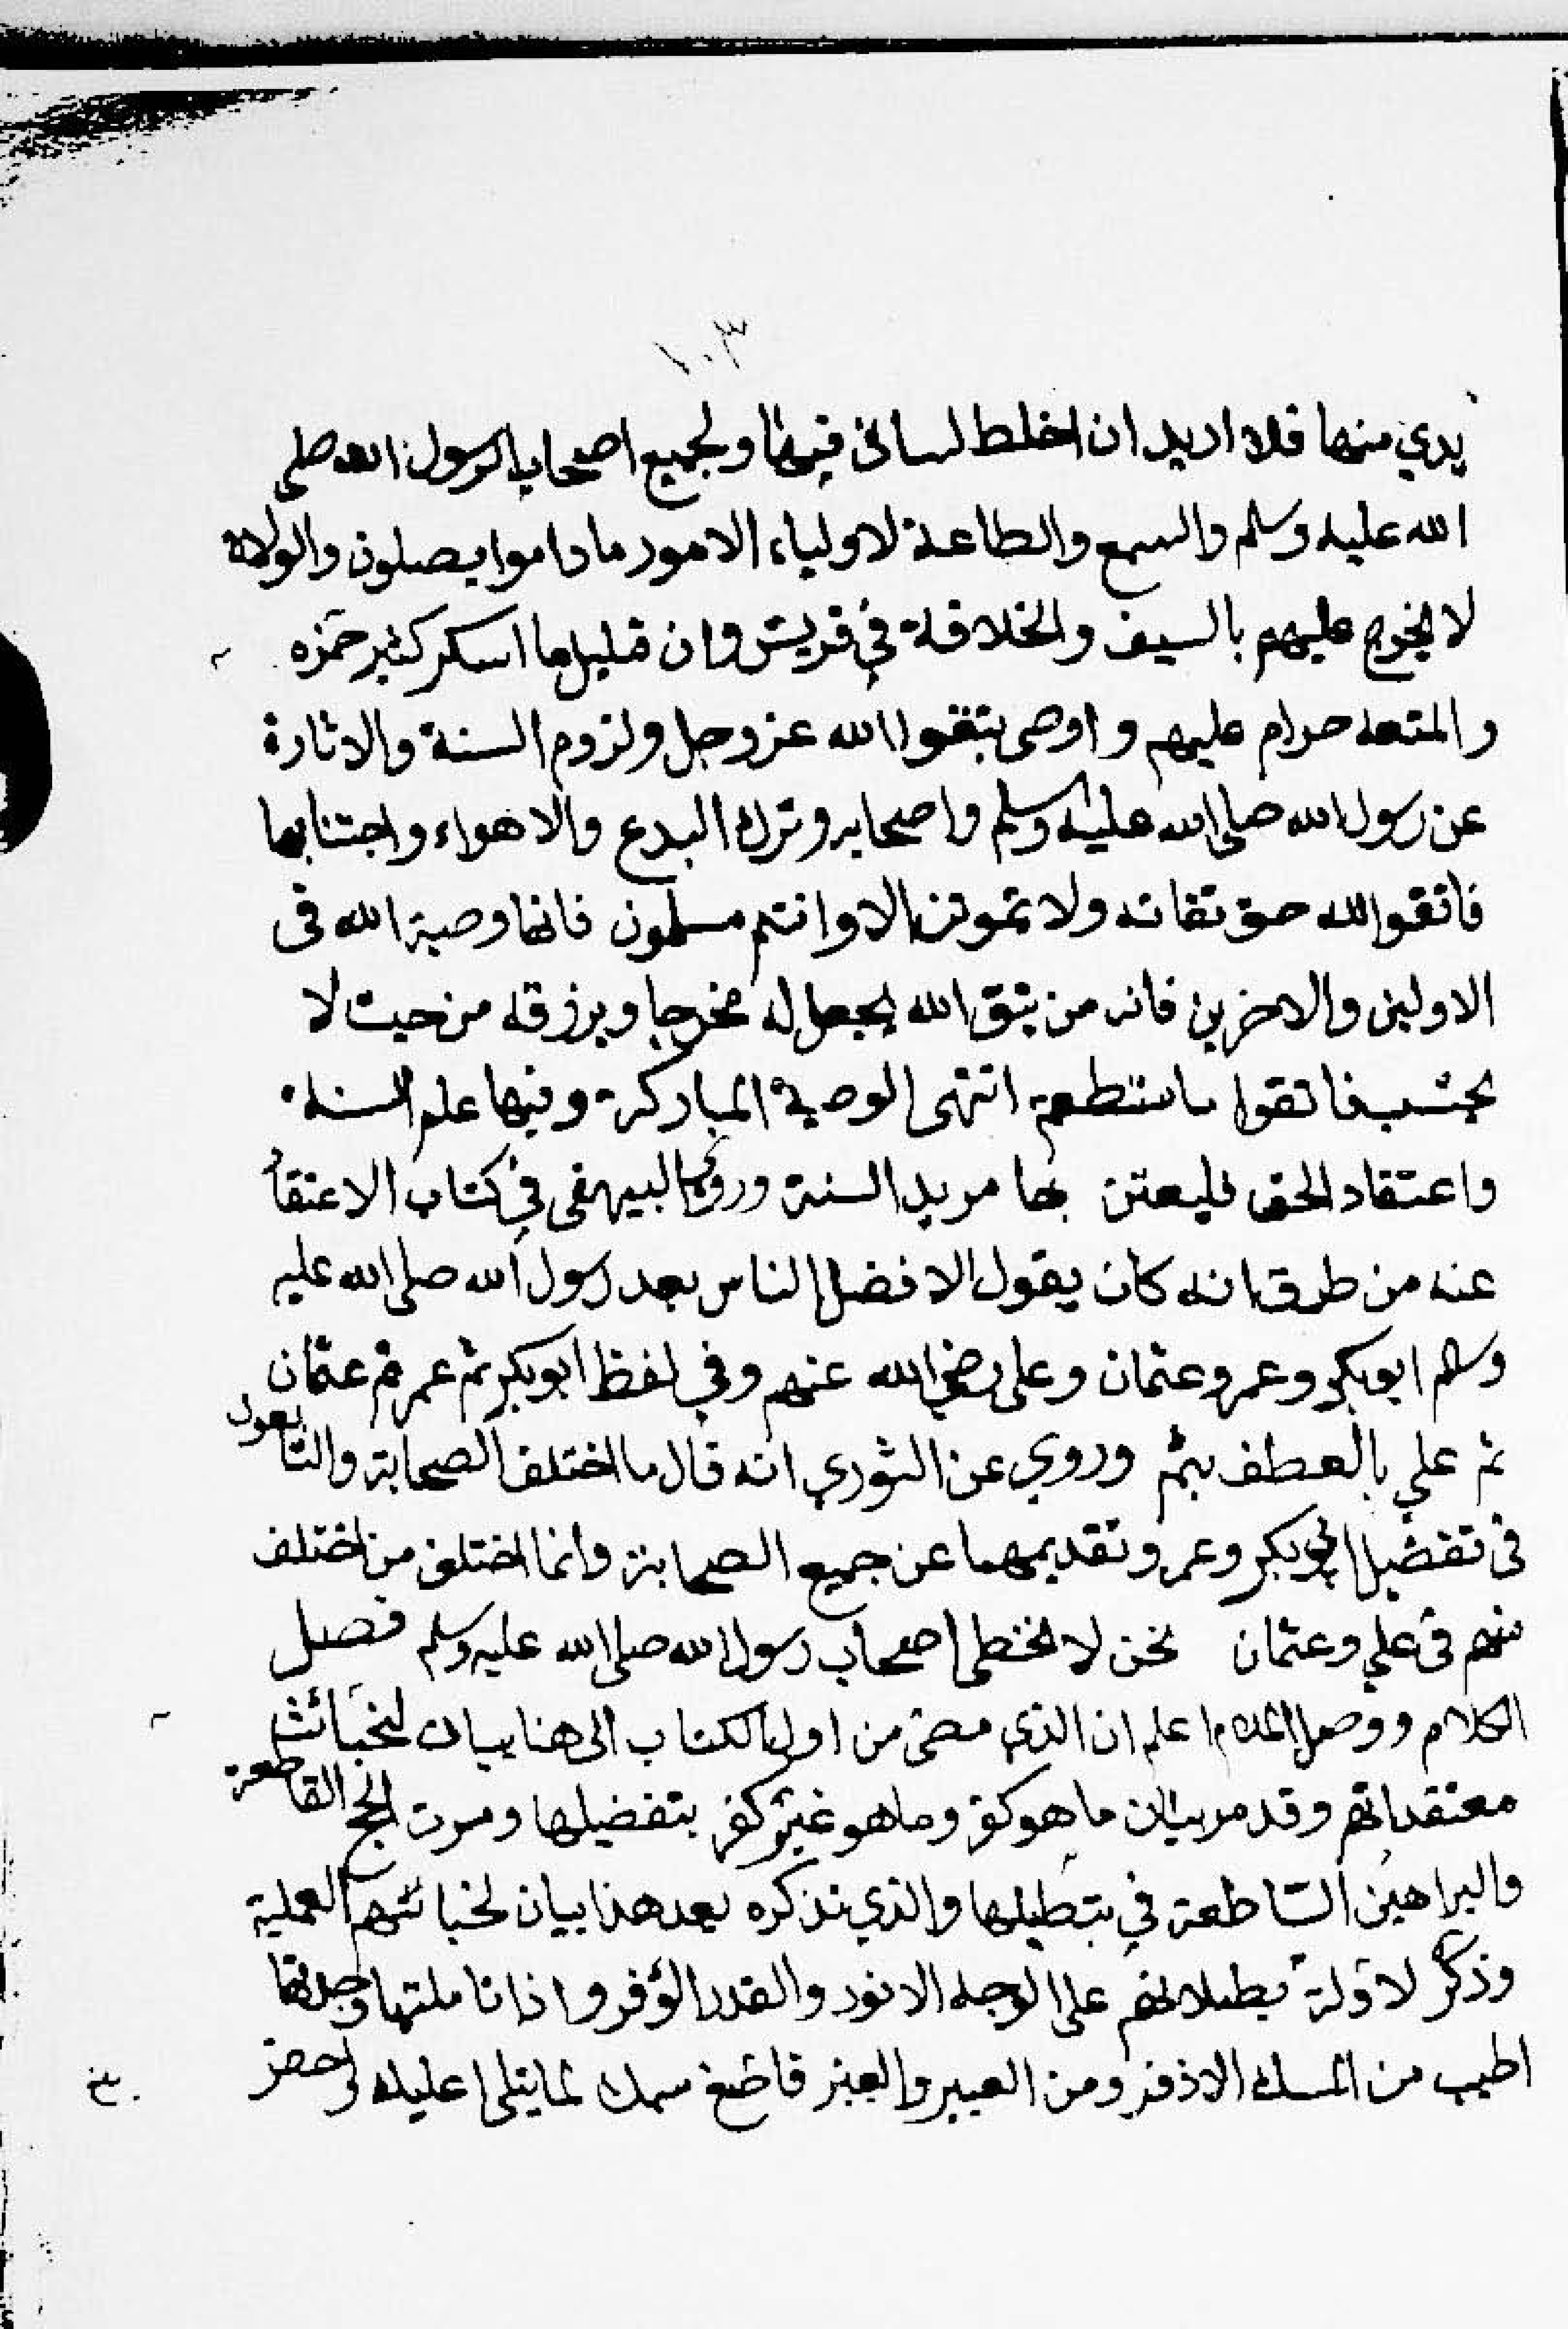 ١٠٣
يدي منها فلا اريد ان اخلط لساني فيها ولجميع اصحاب الرسول الله صلى
الله عليه وسلم والسمع والطاعة لاولياء الامور ما داموا يصلون والولاة
لا يخرج عليهم بالسيف والخلافة في قريش وان قليل ما اسكر كثير خمره
والمتعه حرام عليهم و اوصى بتقوا الله عز وجل ولزوم السنة والاثارة
عن رسول الله صلى الله عليه وسلم واصحابه وترك البدع والاهواء واجتنابها
فاتقوا الله حق تقاته ولا تموتن الا وانتم مسلمون فانها وصية الله في
الاولين والاخرين فانه من يتق الله يجعل له مخرجا ويرزقه من حيث لا
يحتسب فاتقوا ما ستطعتم انتهى الوصية المباركة وفيها علم السنة
واعتقاد الحق فليعتن بها مريد السنة وروى البيهقي في كتاب الاعتقاد
عنه من طرق انه كان يقول الا فضل الناس بعد رسول الله صلى الله عليه
وسلم ابوبكر وعمر وعثمان وعلى رضي الله عنهم وفي لفظ ابوبكر ثم عمر ثم عثمان
ثم علي بالعطف بثم وروي عن الثوري انه قال ما اختلف الصحابة والتابعون
في تفضيل ابي بكر وعمر وتقديمهما عن جميع الصحابة وانما اختلف من اختلف
منهم في علي وعثمان نحن لا نخطى اصحاب رسول الله صلى الله عليه وسلم فصل
الكلام ووصل المدام اعلم ان الذي مضى من اول الكتاب الى هنا بيان لخبائث
معتقداتهم وقد مر بيان ما هو كفر وما هو غير كفر بتفضيلها ومرت الحج القاطعة
والبراهين الساطعة في بتطيلها والذي نذكره بعد هذا بيان لخبائثهم العملية
وذكر لادلة بطلانهم على الوجه الانور والقدر الوفر واذا تاملتها وجدتها
اطيب من المسك الاذفر ومن العبير والعنبر فاضغ سمعك لما يتلى عليك واحضر